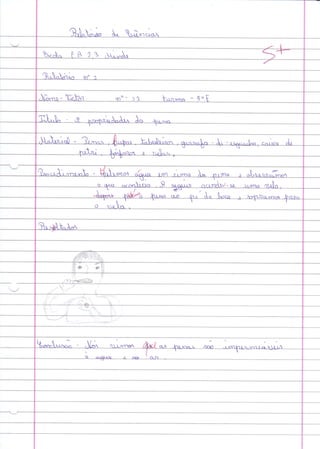 Relatório de Ciências
5+
Relatório nº 2
Nome - Victor nº - 22 turma - 5º E
Título - 2 propriedades da pena
Material - Penas, lupas, tabuleiros, garrafa de esguicho, caixa de
petri, fósforos e velas.
Procedimento - Pusemos água em cima da pena e observámos
o que aconteceu. A seguir acendeu-se uma vela,
depois pôs-se a pena ao pé da boca e soprámos para
a vela.
Resultados
Conclusão - Nós vimos que as penas são impermeáveis
à água e ao ar.